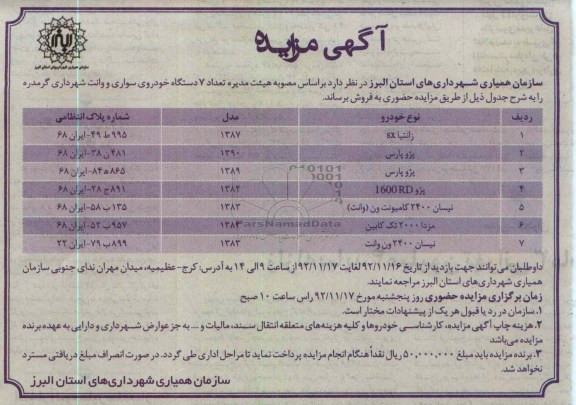 سازمان همیاری شهرداری های استان البرز
آگهی مزایده
سازمان همیاری شهرداری‌های استان البرز در نظر دارد براساس مصوبه هیئت مدیره تعداد ۷ دستگاه خودروی سواری و وانت شهرداری گرمدره
را به شرح جدول ذیل از طریق مزایده حضوری به فروش برساند.
ردیف نوع خودرو مدل شماره پلاک انتظامی
۱ زانتیا sx ۱۳۸۷ ۹۹۵ط ۴۹-ایران ۶۸
۲ پژو پارس ۱۳۹۰ ۴۸۱ن ۳۸-ایران ۶۸
۳ پژو پارس ۱۳۸۹ ۸۶۵ه ۸۴-ایران ۶۸
۴ پژو 1600RD ۱۳۸۲ ۸۹۱ج ۲۸-ایران ۶۸
۵ نیسان ۲۴۰۰ کامیونت ون (وانت) ۱۳۸۳ ۱۳۵ب ۵۸-ایران ۶۸
۶ مزدا ۲۰۰۰ تک کابین ۱۳۸۴ ۹۵۷ب ۵۲-ایران ۶۸
۷ نیسان ۲۴۰۰ ون وانت ۱۳۸۳ ۸۹۹ب ۷۹-ایران ۲۲
ParsNamadData
داوطلبان می‌توانند جهت بازدید از تاریخ ۹۲/۱۱/۱۶ لغایت ۹۲/۱۱/۱۷ از ساعت ۹ الی ۱۴ به آدرس: کرج-عظیمیه، میدان مهران ندای جنوبی سازمان
همیاری شهرداری‌های استان البرز مراجعه نمایند.
زمان برگزاری مزایده حضوری روز پنجشنبه مورخ ۹۲/۱۱/۱۷ راس ساعت ۱۰ صبح
۱. سازمان در رد یا قبول هر یک از پیشنهادات مختار است.
۲. هزینه چاپ آگهی مزایده، کارشناسی خودروها و کلیه هزینه‌های متعلقه انتقال سند، مالیات و ... به جز عوارض شهرداری و دارایی به عهده برنده
مزایده می‌باشد
۳. برنده مزایده باید مبلغ ۵۰,۰۰۰,۰۰۰ ریال نقداً هنگام انجام مزایده پرداخت نماید تا مراحل اداری طی گردد. در صورت انصراف مبلغ دریافتی مسترد
نخواهد شد.
سازمان همیاری شهرداری‌های استان البرز